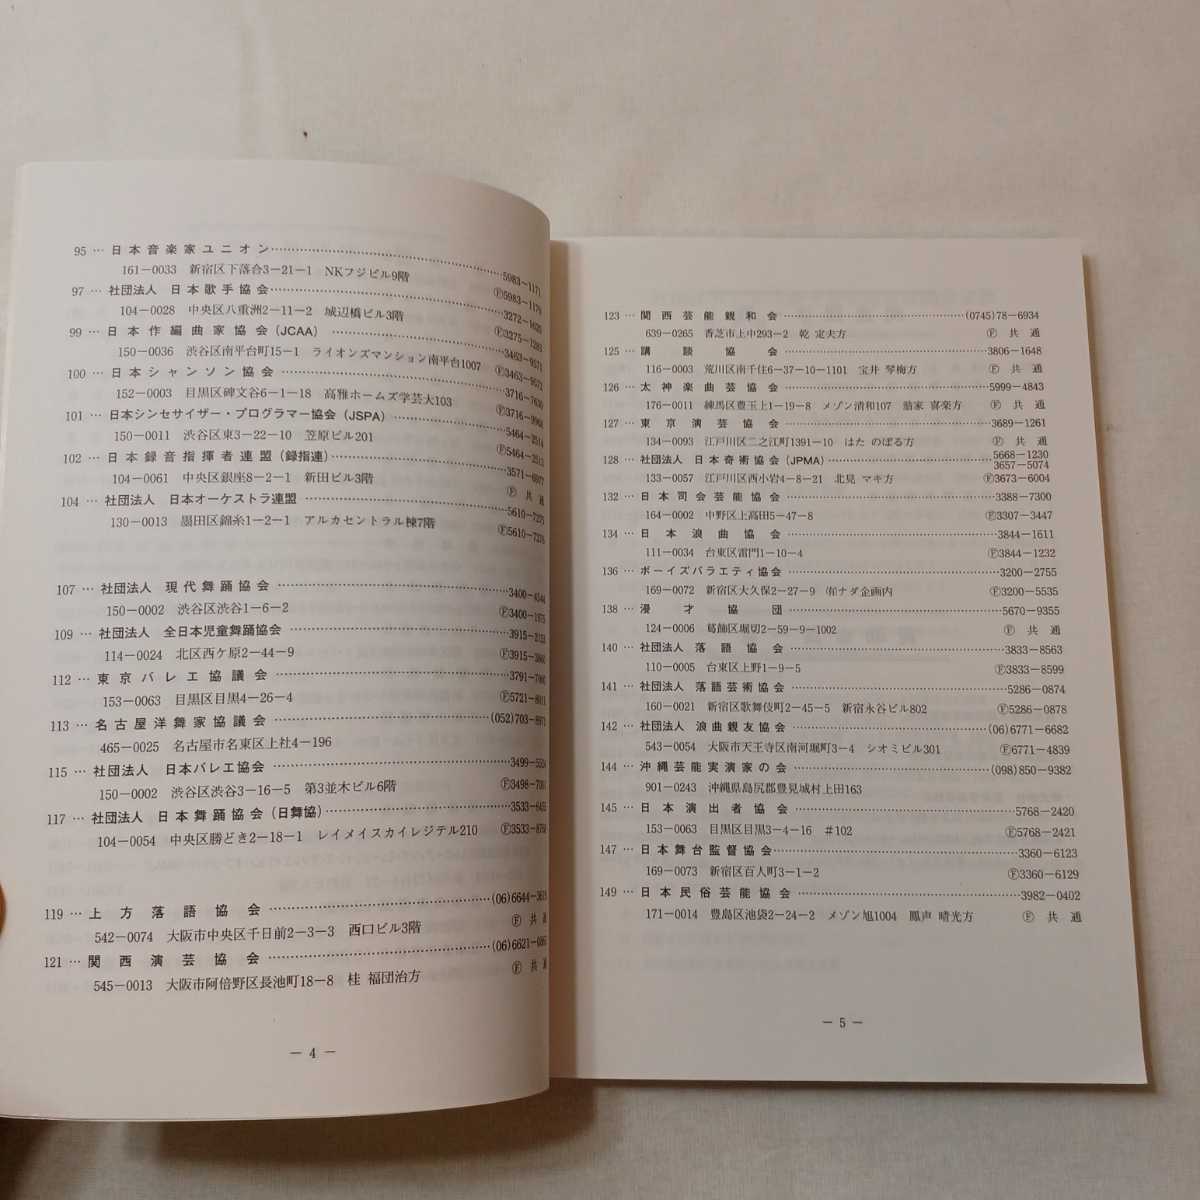 95 … 日本音楽家ユニオン……5983−1171
161−0033 新宿区下落合3−21−1 NKフジビル9階 Ⓕ5983−1179
97 … 社団法人 日本歌手協会……3272−1620
104−0028 中央区八重洲2−11−2 城辺橋ビル3階 Ⓕ3275−1283
99 … 日本作編曲家協会(JCAA) ……3463−9571
150−0036 渋谷区南平台町15−1 ライオンズマンション南平台1007 Ⓕ3463−9572
100 … 日本シャンソン協会……3716−7630
152−0003 目黒区碑文谷6−1−18 高雅ホームズ学芸大103 Ⓕ3716−9968
101 … 日本シンセサイザー・プログラマー協会(JSPA) ……5464−2514
150−0011 渋谷区東3−22−10 笠原ビル201 Ⓕ5464−2513
102 … 日本録音指揮者連盟(録指連)……3571−6977
104−0061 中央区銀座8−2−1 新田ビル3階 Ⓕ 共 通
104 … 社団法人 日本オーケストラ連盟……5610−7275
130−0013 墨田区錦糸1−2−1 アルカセントラル棟7階 Ⓕ5610−7276
107 … 社団法人 現代舞踊協会……3400−4544
150−0002 渋谷区渋谷1−6−2 Ⓕ3400−1975
109 … 社団法人 全日本児童舞踊協会……
114−0024 北区西ケ原2−44−9
112 … 東京バレエ協議会……
153−0063 目黒区目黒4−26−4 Ⓕ5721−8011
113 … 名古屋洋舞家協議会……
465−0025 名古屋市名東区上社4−196
115 … 社団法人 日本バレエ協会……
150−0002 渋谷区渋谷3−16−5 第3並木ビル6階
117 … 社団法人 日本舞踊協会(日舞協)……
104−0054 中央区勝どき2−18−1 レイメイスカイレジテル210
119 … 上方落語協会……
542−0074 大阪市中央区千日前2−3−3 西口ビル3階 Ⓕ 共 通
121 … 関西演芸協会……
545−0013 大阪市阿倍野区長池町18−8 桂 福団治方 Ⓕ 共 通
− 4 −
123 … 関西芸能親和会……(0745)78−6934
639−0265 香芝市上中293−2 乾 定夫方 Ⓕ 共 通
125 … 講談協会……3806−1648
116−0003 荒川区南千住6−37−10−1101 宝井 琴梅方 Ⓕ 共 通
126 … 太神楽曲芸協会……5999−4843
176−0011 練馬区豊玉上1−19−8 メゾン清和107 翁家 喜楽方 Ⓕ 共 通
127 … 東京演芸協会……3689−1261
134−0093 江戸川区二之江町1391−10 はた のぼる方 Ⓕ 共 通
128 … 社団法人 日本奇術協会(JPMA)……5668−1230
3657−5074
133−0057 江戸川区西小岩4−8−21 北見 マキ方 Ⓕ3673−6004
132 … 日本司会芸能協会……3388−7300
164−0002 中野区上高田5−47−8 Ⓕ3307−3447
134 … 日本浪曲協会……3844−1611
111−0034 台東区雷門1−10−4 Ⓕ3844−1232
136 … ボーイズバラエティ協会……3200−2755
169−0072 新宿区大久保2−27−9 ㈲ナダ企画内 Ⓕ3200−5535
138 … 漫才協団……5670−9355
124−0006 葛飾区堀切2−59−9−1002 Ⓕ 共 通
140 … 社団法人 落語協会……3833−8563
110−0005 台東区上野1−9−5 Ⓕ3833−8599
141 … 社団法人 落語芸術協会……5286−0874
160−0021 新宿区歌舞伎町2−45−5 新宿永谷ビル802 Ⓕ5286−0878
142 … 社団法人 浪曲親友協会……(06)6771−6682
543−0054 大阪市天王寺区南河堀町3−4 シオミビル301 Ⓕ6771−4839
144 … 沖縄芸能実演家の会……(098)850−9382
901−0243 沖縄県島尻郡豊見城村上田163
145 … 日本演出者協会……5768−2420
153−0063 目黒区目黒3−4−16 #102 Ⓕ5768−2421
147 … 日本舞台監督協会……3360−6123
169−0073 新宿区百人町3−1−2 Ⓕ3360−6129
149 … 日本民俗芸能協会……3982−0402
171−0014 豊島区池袋2−24−2 メゾン旭1004 鳳声 晴光方 Ⓕ 共 通
− 5 −